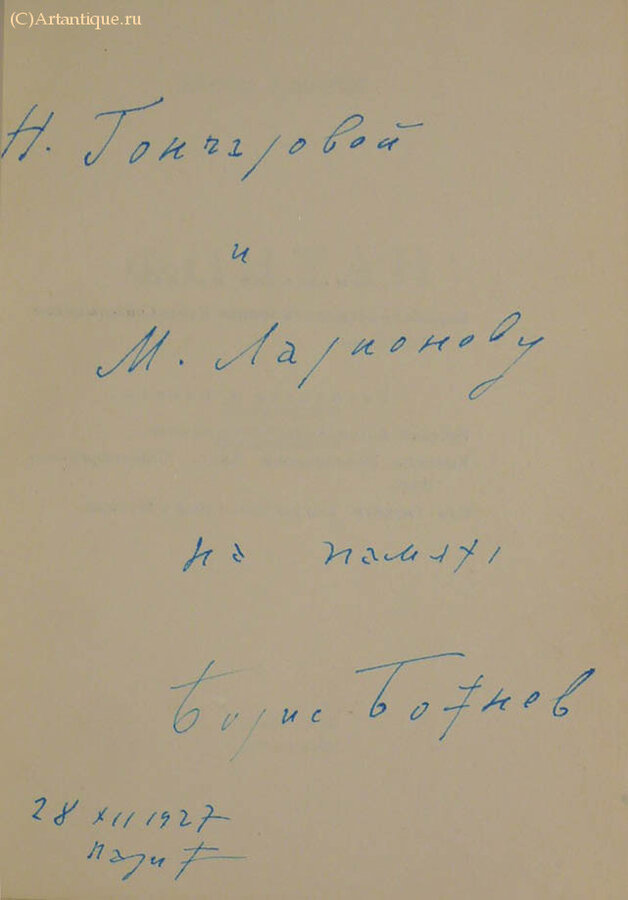 (C)Artantique.ru
Н. Гончаровой
и
М. Ларионову
на память
Борис Божнев
28 XII 1927
Париж